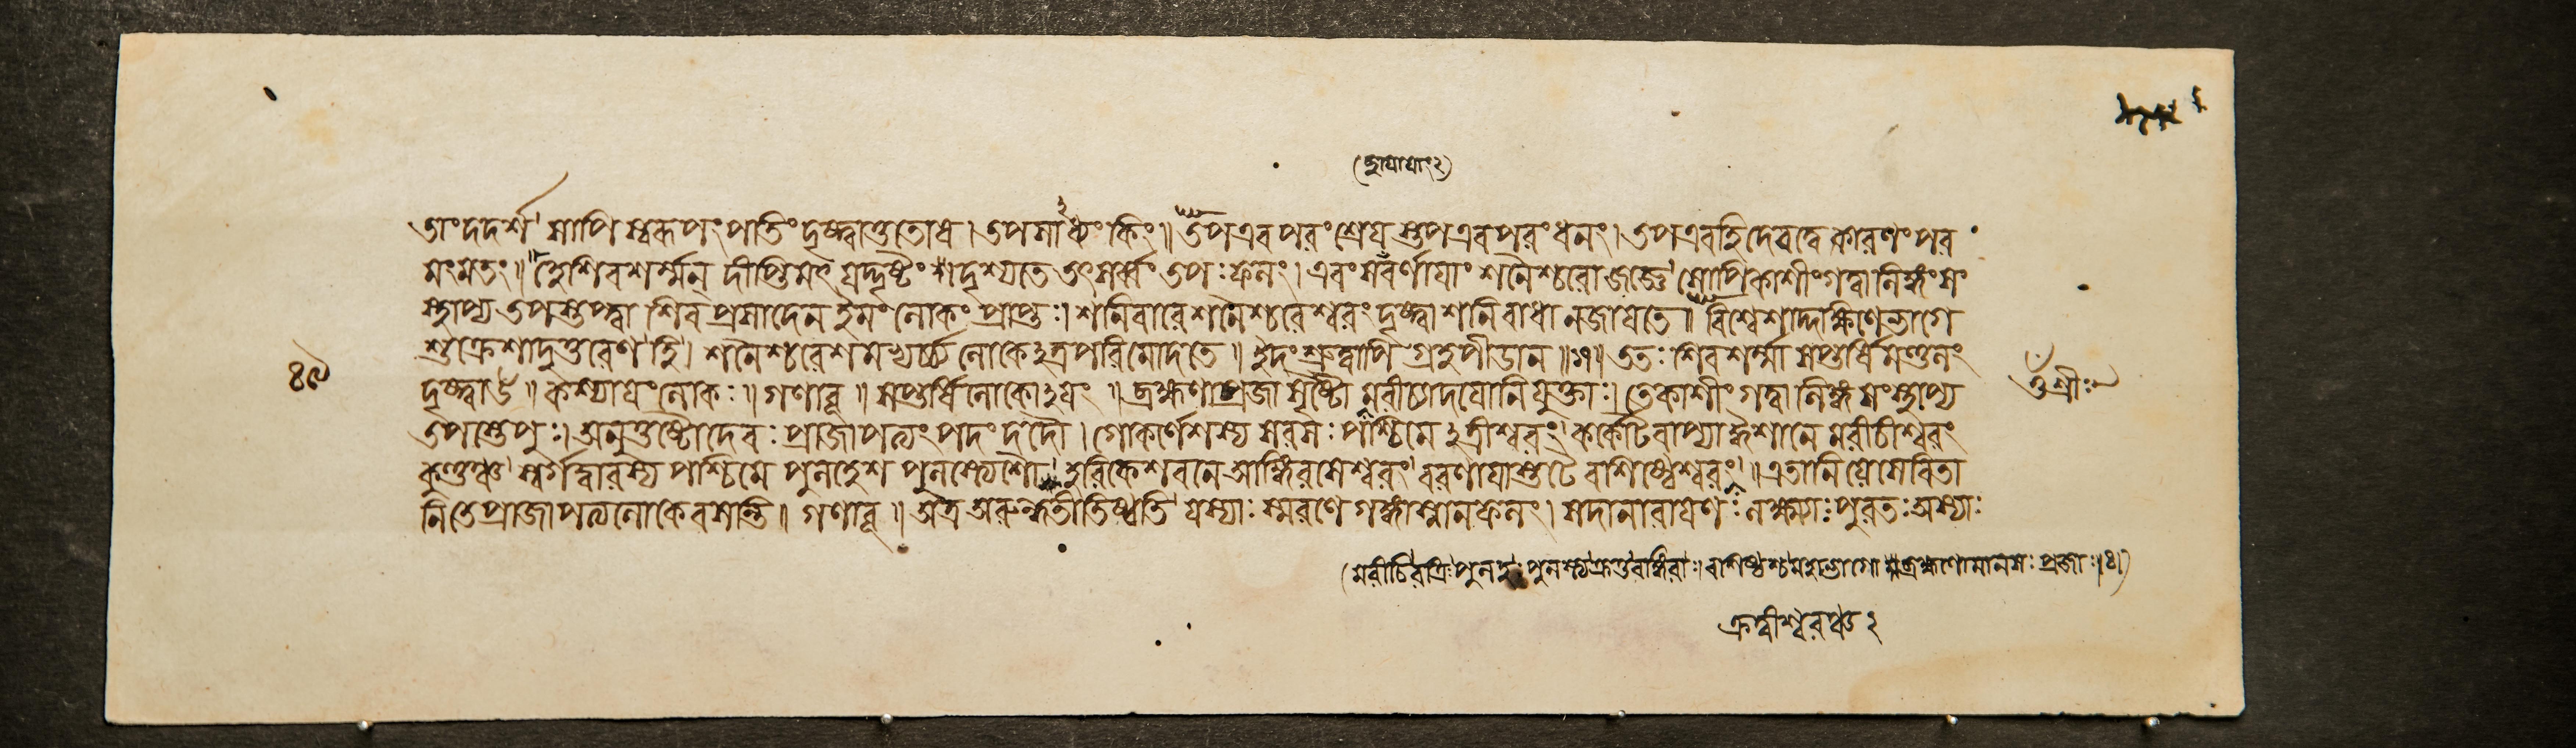 (ছাযাযাং২)
তাং দদর্শ সাপি স্বরূপং পতিং দৃষ্ট্বাতুতোষ। তপসাঽধ্যং কিং॥ তপএব পরং শ্রেয স্তপএব পরং ধনং। তপএবহিদেবত্বে কারণং পর
সংমতং॥ হেশিবশর্ম্মন্ দীপ্তিমৎ যদ্দৃষ্টং দৃশ্যতে তৎসর্ব্বং তপঃফলং। এবংসবর্ণাযাং শনৈশ্চরোজজ্ঞে সোপিকাশীংগত্বালিঙ্গং সং
স্থাপ্য তপস্তপ্ত্বা শিবপ্রসাদেন ইমং লোকং প্রাপ্তঃ। শনিবারেশনৈশ্চরেশ্বরং দৃষ্ট্বা শনিবাধা নজাযতে॥ বিশ্বেশাদ্দক্ষিণেভাগে
শুক্রেশাদুত্তরেণ হি। শনৈশ্চরেশমভ্যর্চ্চ্য লোকেঽত্রপরিমোদতে॥ ইদংশ্রুত্বাপি গ্রহপীডান॥১॥ ততঃ শিবশর্ম্মা সপ্তর্ষিমণ্ডলং
৪৯
দৃষ্ট্বাহ॥ কস্যাযং লোকঃ॥ গণাবূ॥ সপ্তর্ষিলোকোঽযং॥ ব্রহ্মণাপ্রজা সৃষ্টৌ মরীচ্যাদযোনিযুক্তাঃ। তেকাশীং গত্বা লিঙ্গং সংস্থাপ্য
ওঁশ্রীঃ
তপস্তেপুঃ। অনুতুষ্টোদেবঃ প্রাজাপত্যং পদং দদৌ। গোকর্ণেশস্য সরসঃ পশ্চিমে ঽত্রীশ্বরং কর্কোটবাপ্যা ঐশানে মরীচীশ্বরং
কুণ্ডঞ্চ স্বর্গদ্বারস্য পশ্চিমে পুলহেশ পুলস্ত্যেশৌ হরিকেশবনে আঙ্গিরসেশ্বরং বরণাযাস্তটে বাশিষ্ঠেশ্বরং॥ এতানি যেসেবিতা
নি তেপ্রাজাপত্যলোকেবসন্তি॥ গণাবূ॥ অত্র অরুন্ধতীতিষ্ঠতি যস্যাঃ স্মরণে গঙ্গাস্নানফলং। সদানারাযণঃ লক্ষ্ম্যাঃ পুরতঃ অস্যাঃ
(মরীচিরত্রিঃ পুলহঃ পুলস্ত্যক্রতুরাঙ্গিরাঃ। বাশিষ্ঠশ্চমহাভাগো ব্রহ্মণোমানসাঃ প্রজাঃ।৪।)
ক্রত্বীশ্বরঞ্চ ২